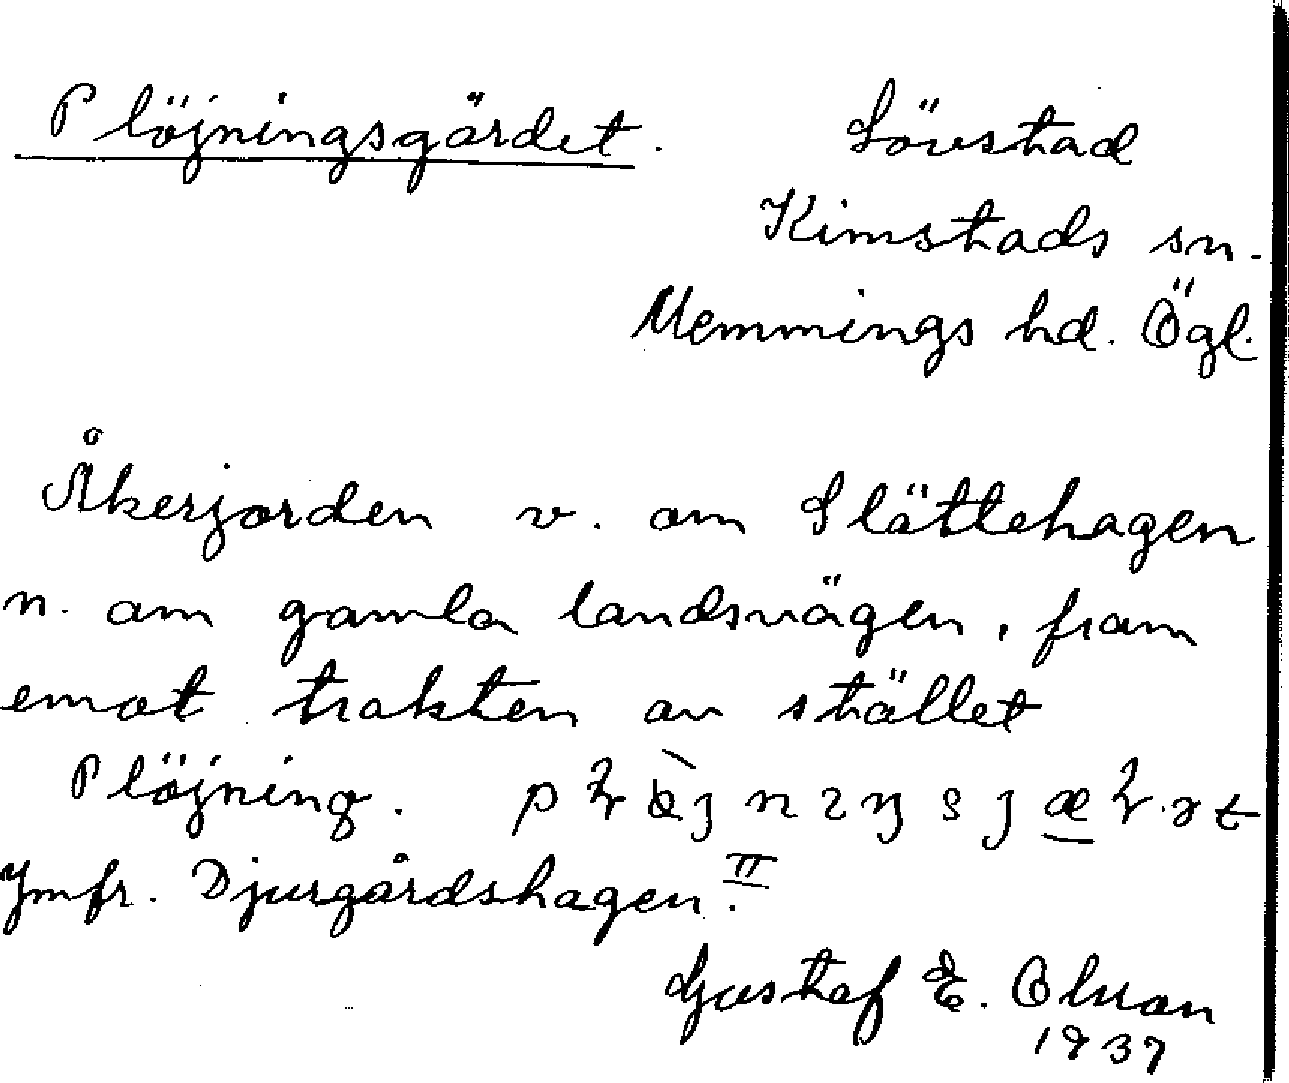 Plöjningsgärdet.
Lövstad
Kimstads sn.
Memmings hd. Ögl.
Åkerjorden v. om Slättehagen
n. om gamla landsvägen, fram
emot trakten av stället
Plöjning.
Jmfr. Djurgårdshagen II.
Gustaf E. Olson
1937